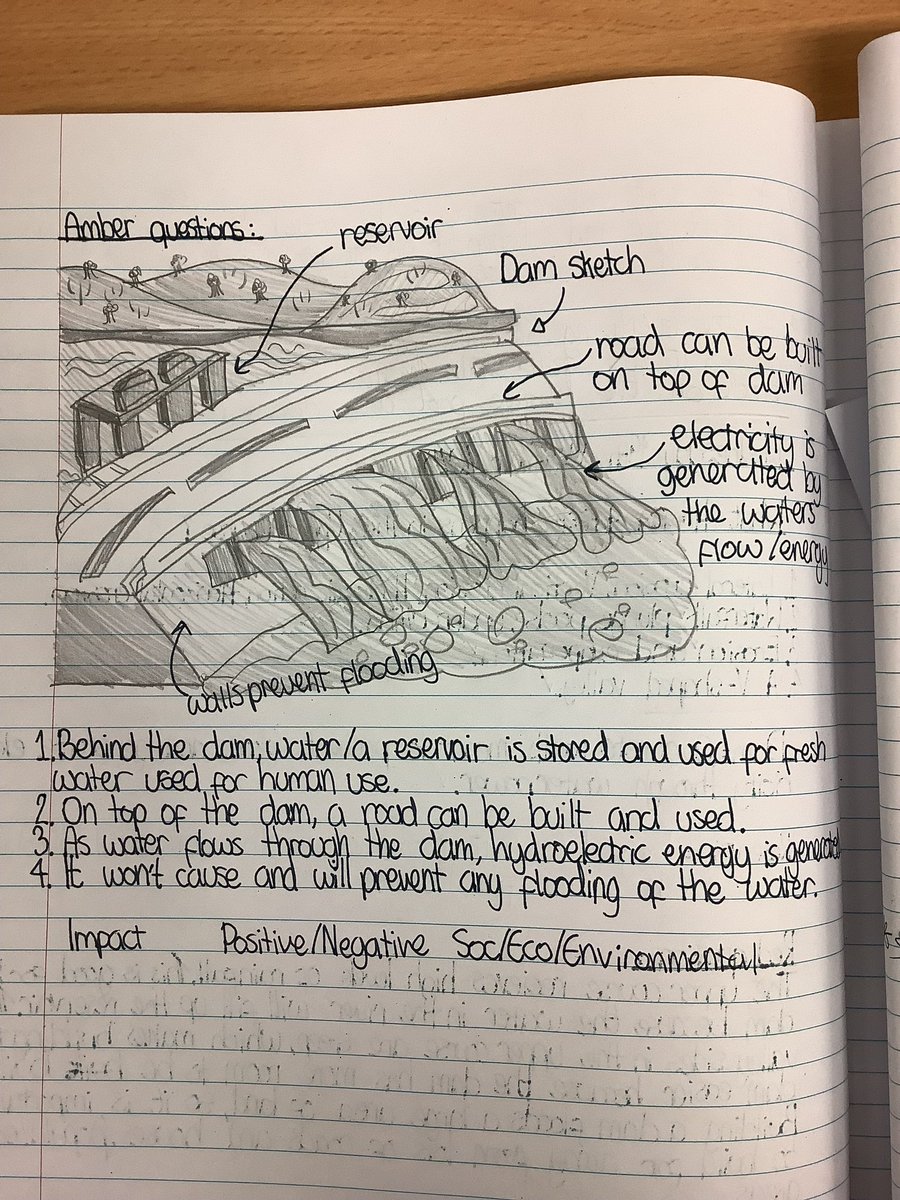 Amber questions:
reservoir
Dam sketch
road can be built
on top of dam
electricity is
generated by
the waters
flow/energy
walls prevent flooding
1. Behind the dam, water/a reservoir is stored and used for fresh
water used for human use.
2. On top of the dam, a road can be built and used.
3. As water flows through the dam, hydroelectric energy is generated
4. It won't cause and will prevent any flooding of the water.
Impact Positive/Negative Soc/Eco/Environmental